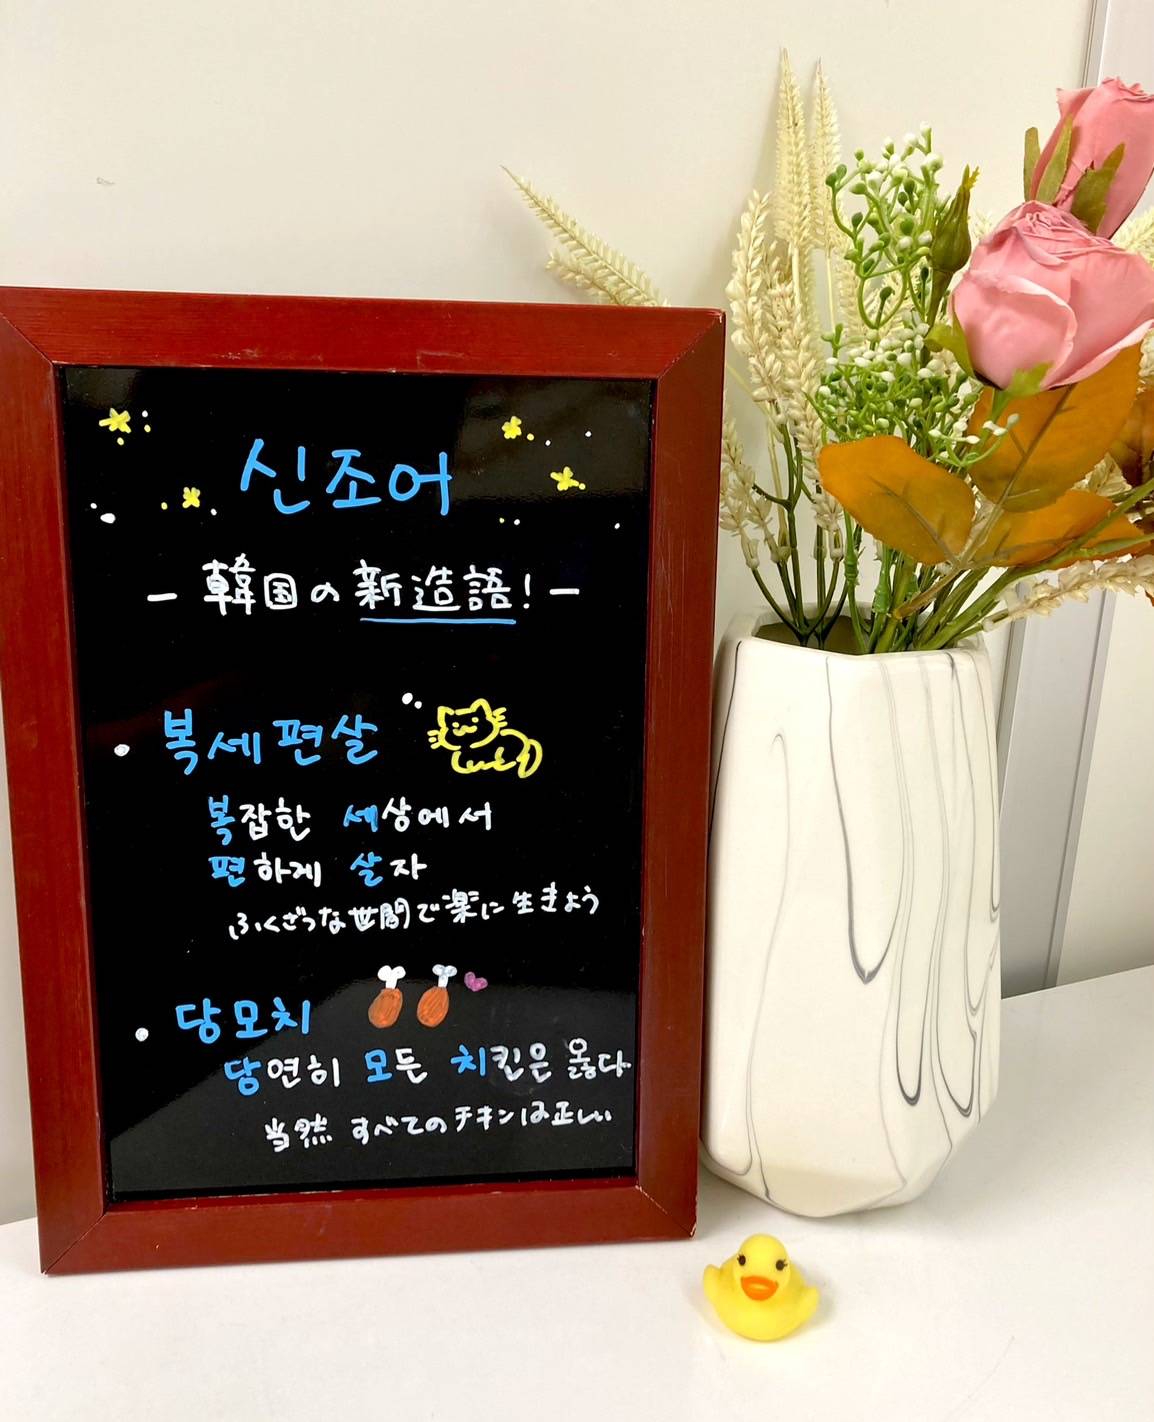 신조어
- 韓国の新造語! -
• 복세편살
복잡한 세상에서
편하게 살자
ふくざつな世間で楽に生きよう
• 당모치
당연히 모든 치킨은 옳다
当然 すべてのチキンは正しい